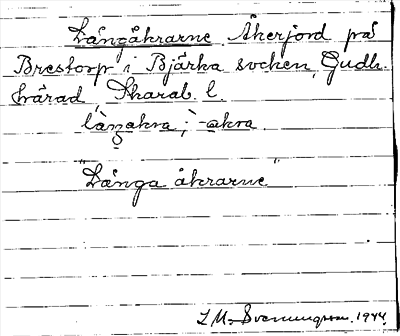 Långåkrarne Åkerjord på
Brestorp i Bjärka socken, Gudh.
härad, Skarab. l.
làŋakra; -akra
"Långa åkrarne"
I. M. Svenungsson. 1944